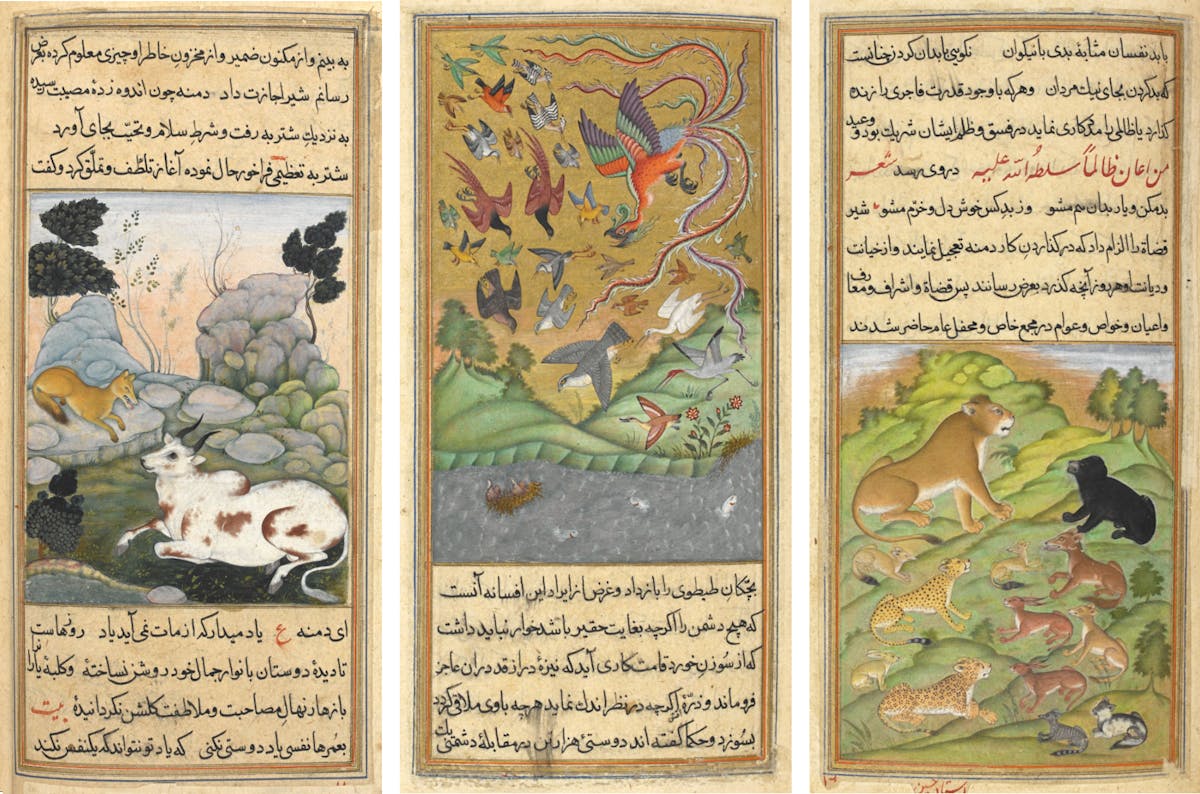 به بینم و از مکنون ضمیر و از مخزون خاطر او چیزی معلوم کرده بعرض
رسانم شیر اجازت داد دمنه چون اندوه زدهٔ مصیبت رسیده
به نزدیك شتربه رفت و شرط سلام و تحیّت بجای آورد
شتربه تعظیمی فراخور حال نموده آغاز تلطّف و تملّق کرد و گفت
ای دمنه ع یاد میدار که از مات نمی آید یاد روزهاست
تا دیدهٔ دوستان بانوار جمال خود روشن نساختهٔ و کلبهٔ یاران را
بازهار نهال مصاحبت و ملاطفت گلشن نگردانیدهٔ بیت
بعمرها نفسی یاد دوستی نکنی که یاد تو نتواند که یکنفس نکند
بچّکان طیطوی را باز داد و غرض از ایراد این افسانه آنست
که هیچ دشمن را اگرچه بغایت حقیر باشد خوار نباید داشت
که از سوزن خورد قامت کاری آید که نیزهٔ دراز قد در ان عاجز
فروماند و ذرّهٔ اگرچه در نظر اندك نماید هرچه باوی ملاقی گردد
بسوزد و حکما گفته اند دوستیٔ هزار تن در مقابلهٔ دشمنیٔ یك
با بد نفسان مثابهٔ بدی با نیکوان نکویی با بدان کردن چنانست
که بد کردن بجای نیك مردان و هرکه با وجود قدرت فاجری را زنده
گذارد یا ظالمی را مددکاری نماید در فسق و ظلم ایشان شریك بود و وعید
من اعان ظالماً سلطهُ اللّه علیه در وی رسد شعر
بد مکن و یار بدان هم مشو وز بد کس خوش دل و خرّم مشو شیر
قضاة را الزام داد که در گذاردن کار دمنه تعجیل نمایند و از خیانت
و دیانت او هر روز آنچه گذرد بعرض رسانند پس قضاة و اشراف و معارف
و اعیان و خواص و عوام در مجمع خاص و محفل عام حاضر شدند